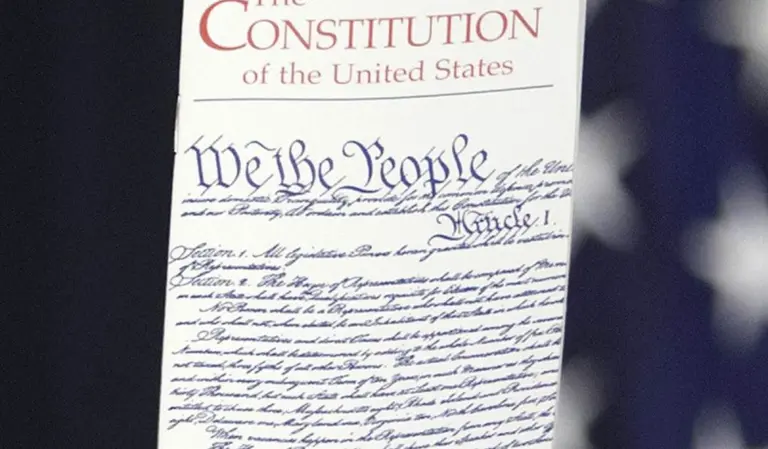 The
CONSTITUTION
of the United States
We the People of the
insure domestic Tranquility, provide for common
and our Posterity, do ordain and establish this Constitution for the
Article I.
Section 1. All legislative Powers herein granted shall be vested in
of Representatives
Section 2. The House of Representatives shall be composed of
in each State shall have Qualifications requisite for Electors of the most
No Person shall be a Representative who shall not have attained
and who shall not, when elected, be an Inhabitant of the State in which
Representatives and direct Taxes shall be apportioned among the
Numbers, which shall be determined by adding to the whole Number of free
not taxed, three fifths of all other Persons. The actual Enumeration shall be
and within every subsequent Term of ten Years, in such Manner as they
thirty Thousand, but each State shall have at Least one Representative;
entitled to chuse three, Massachusetts eight, Rhode Island and Providence
eight, Delaware one, Maryland six, Virginia ten, North Carolina five
When vacancies happen in the Representation from any State, the